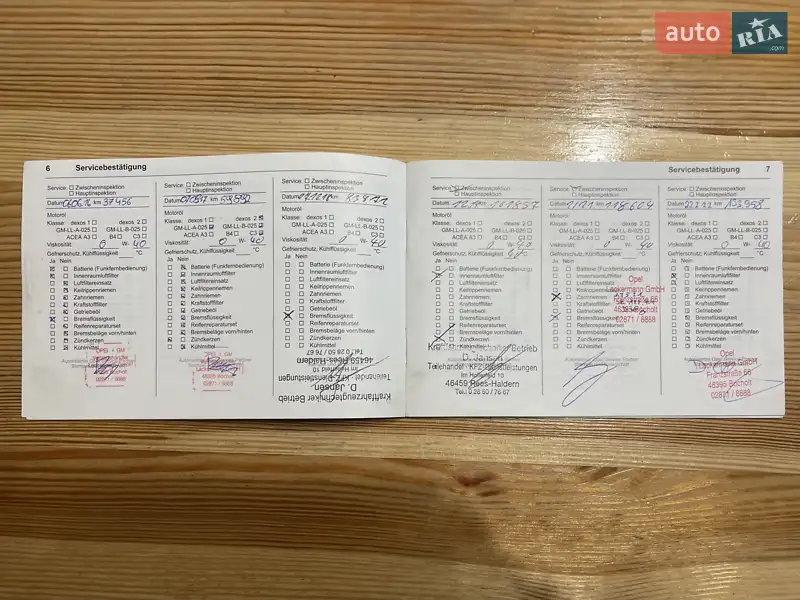 auto RIA
.com
6 Servicebestätigung
Service: Zwischeninspektion
Hauptinspektion
Datum 37456
Motoröl
Klasse: dexos 1 dexos 2
GM-LL-A-025 GM-LL-B-025
ACEA A3 B4 C3
Viskosität 0 W- 40
Gefrierschutz, Kühlflüssigkeit °C
Ja Nein
Batterie (Funkfernbedienung)
Innenraumluftfilter
Luftfiltereinsatz
Keilrippenriemen
Zahnriemen
Kraftstofffilter
Getriebeöl
Bremsflüssigkeit
Reifenreparaturset
Bremsbeläge vorn/hinten
Zündkerzen
Kühlmittel
OPEL + GM
Service: Zwischeninspektion
Hauptinspektion
Datum km
Motoröl
Klasse: dexos 1 dexos 2
GM-LL-A-025 GM-LL-B-025
ACEA A3 B4 C3
Viskosität 0 W- 40
Gefrierschutz, Kühlflüssigkeit °C
Ja Nein
Batterie (Funkfernbedienung)
Innenraumluftfilter
Luftfiltereinsatz
Keilrippenriemen
Zahnriemen
Kraftstofffilter
Getriebeöl
Bremsflüssigkeit
Reifenreparaturset
Bremsbeläge vorn/hinten
Zündkerzen
Kühlmittel
46395 Bocholt
02871 / 8888
Service: Zwischeninspektion
Hauptinspektion
Datum
Motoröl
Klasse: dexos 1 dexos 2
GM-LL-A-025 GM-LL-B-025
ACEA A3 B4 C3
Viskosität 0 W- 40
Gefrierschutz, Kühlflüssigkeit °C
Ja Nein
Batterie (Funkfernbedienung)
Innenraumluftfilter
Luftfiltereinsatz
Keilrippenriemen
Zahnriemen
Kraftstofffilter
Getriebeöl
Bremsflüssigkeit
Reifenreparaturset
Bremsbeläge vorn/hinten
Zündkerzen
Kühlmittel
Kraftfahrzeugtechniker Betrieb
D. Jansen
Teilehandel - KFZ-Dienstleistungen
Im Hollerfeld 10
46459 Rees-Haldern
Tel.: 0 28 50 / 76 67
Servicebestätigung 7
Service: Zwischeninspektion
Hauptinspektion
Datum
Motoröl
Klasse: dexos 1 dexos 2
GM-LL-A-025 GM-LL-B-025
ACEA A3 B4 C3
Viskosität 0 W- 40
Gefrierschutz, Kühlflüssigkeit °C
Ja Nein
Batterie (Funkfernbedienung)
Innenraumluftfilter
Luftfiltereinsatz
Keilrippenriemen
Zahnriemen
Kraftstofffilter
Getriebeöl
Bremsflüssigkeit
Reifenreparaturset
Bremsbeläge vorn/hinten
Zündkerzen
Betrieb
D. Jansen
Teilehandel - KFZ-Dienstleistungen
Im Hollerfeld 10
46459 Rees-Haldern
Tel.: 0 28 50 / 76 67
Service: Zwischeninspektion
Hauptinspektion
Datum km 118604
Motoröl
Klasse: dexos 1 dexos 2
GM-LL-A-025 GM-LL-B-025
ACEA A3 B4 C3
Viskosität 0 W- 40
Gefrierschutz, Kühlflüssigkeit °C
Ja Nein
Batterie (Funkfernbedienung)
Innenraumluftfilter
Luftfiltereinsatz
Keilrippenriemen
Zahnriemen
Kraftstofffilter
Getriebeöl
Bremsflüssigkeit
Reifenreparaturset
Bremsbeläge vorn/hinten
Zündkerzen
Kühlmittel
Opel
GmbH
46395 Bocholt
02871 / 8888
Service: Zwischeninspektion
Hauptinspektion
Datum km 133958
Motoröl
Klasse: dexos 1 dexos 2
GM-LL-A-025 GM-LL-B-025
ACEA A3 B4 C3
Viskosität 0 W- 40
Gefrierschutz, Kühlflüssigkeit °C
Ja Nein
Batterie (Funkfernbedienung)
Innenraumluftfilter
Luftfiltereinsatz
Keilrippenriemen
Zahnriemen
Kraftstofffilter
Getriebeöl
Bremsflüssigkeit
Reifenreparaturset
Bremsbeläge vorn/hinten
Zündkerzen
Kühlmittel
Opel
GmbH
Franzstraße 66
46395 Bocholt
02871 / 8888